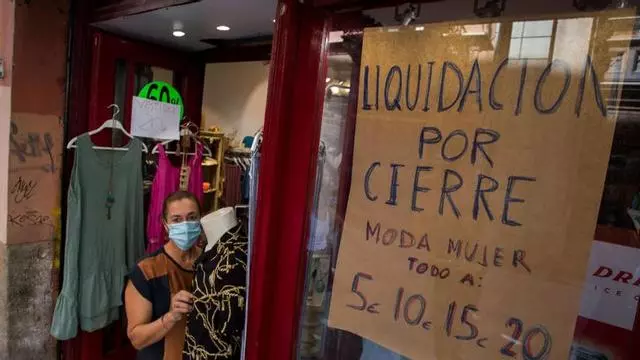 60%
LIQUIDACION
POR
CIERRE
MODA MUJER
TODO A:
5€ 10€ 15€ 20